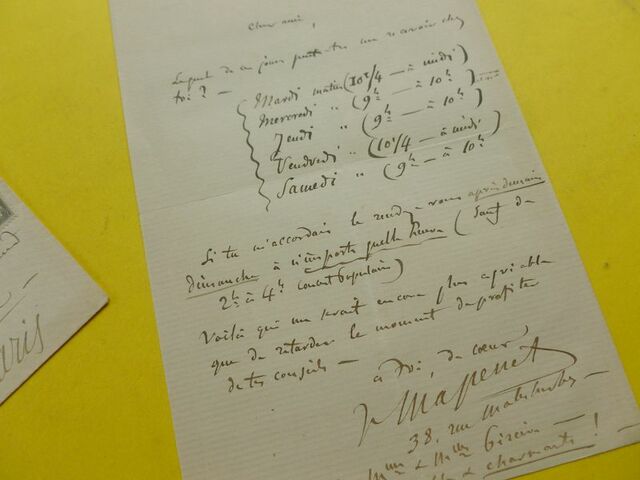 Cher ami,
Lequel de ces jours peux-tu me recevoir chez
toi ? —
Mardi matin (10h 1/4 — à midi)
Mercredi " (9h — à 10h)
Jeudi " (9h — à 10h)
Vendredi " (10h 1/4 — à midi)
Samedi " (9h — à 10h)
Si tu m'accordais le rendez-vous après demain
dimanche à n'importe quelle heure (sauf de
2h à 4h concert populaire)
Voilà qui me serait encore plus agréable
que de retarder le moment de profiter
de tes conseils —
à toi, de cœur,
J Massenet
38, rue Malesherbes —
Mme & Mme
& charmants ! —
Paris